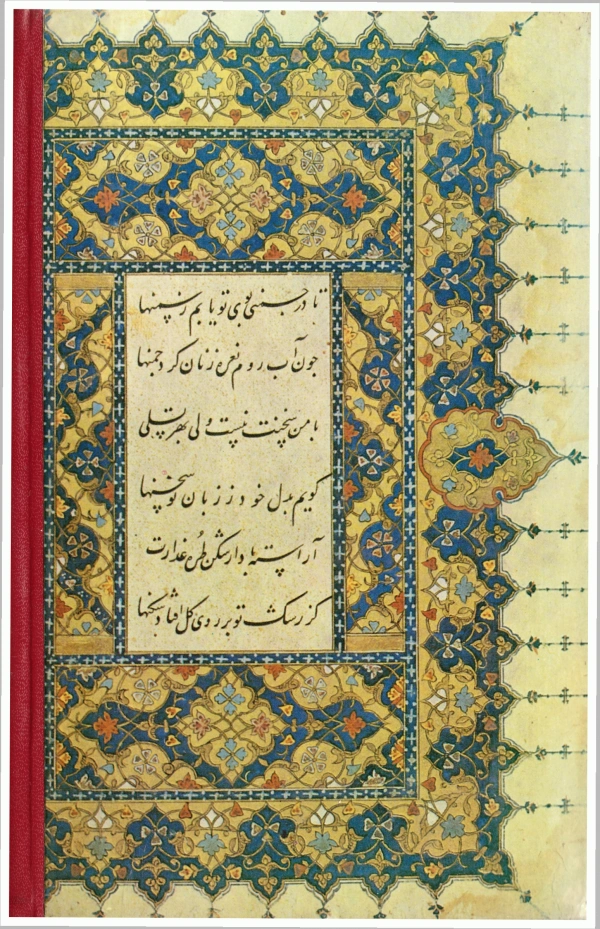 تا در چمنی بوی تو یابم ز سمنها
چون آب روم نعره زنان گرد چمنها
با من سخنت نیست ولی بهر تسلی
گویم بدل خود ز زبان تو سخنها
آراسته باد از شکن طره عذارت
کز رشک تو بر روی گل افتاد شکنها